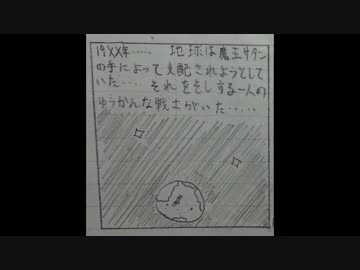 19XX年…… 地球は魔王サタン
の手によって支配されようとして
いた…… それををしする一人の
ゆうかんな戦士がいた……